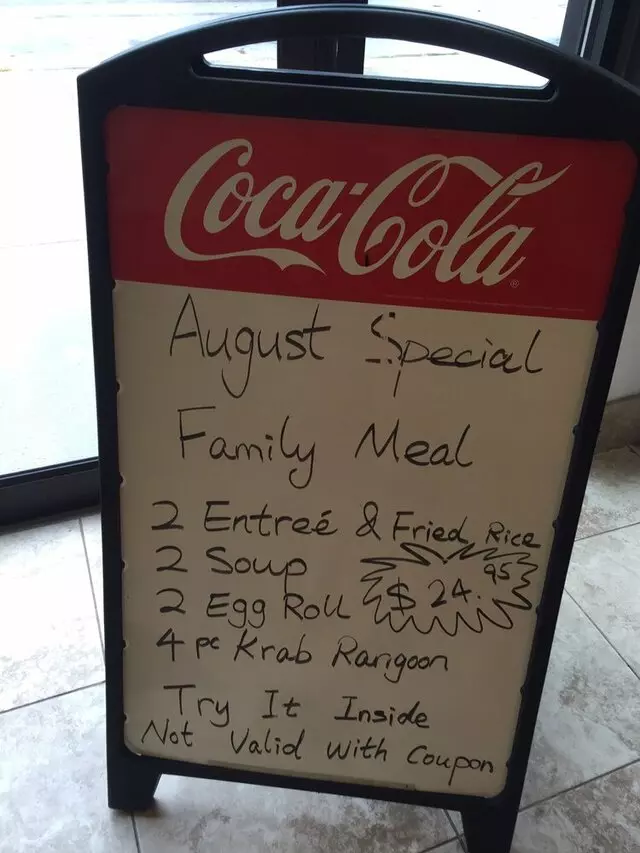 Coca-Cola
August Special
Family Meal
2 Entreé & Fried Rice
2 Soup
$24.95
2 Egg Roll
4 pc Krab Rangoon
Try It Inside
Not Valid with Coupon